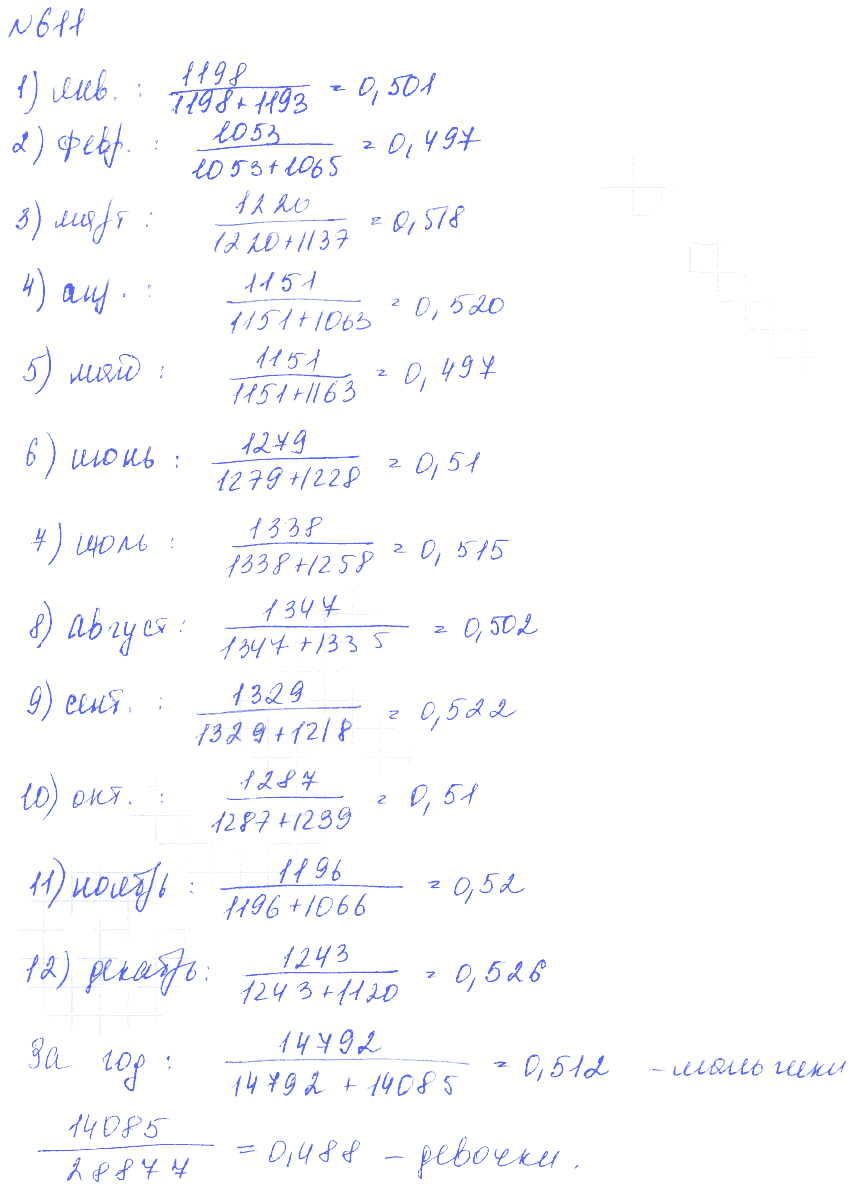 №611
1) янв. : 1198 / 1198+1193 = 0,501
2) февр. : 1053 / 1053+1065 = 0,497
3) март : 1220 / 1220+1137 = 0,518
4) апр. : 1151 / 1151+1063 = 0,520
5) май : 1151 / 1151+1163 = 0,497
6) июнь : 1279 / 1279+1228 = 0,51
7) июль : 1338 / 1338+1258 = 0,515
8) август : 1347 / 1347+1335 = 0,502
9) сент. : 1329 / 1329+1218 = 0,522
10) окт. : 1287 / 1287+1239 = 0,51
11) ноябрь : 1196 / 1196+1066 = 0,52
12) декабрь : 1243 / 1243+1120 = 0,526
За год : 14792 / 14792 + 14085 = 0,512 – мальчики
14085 / 28877 = 0,488 – девочки.